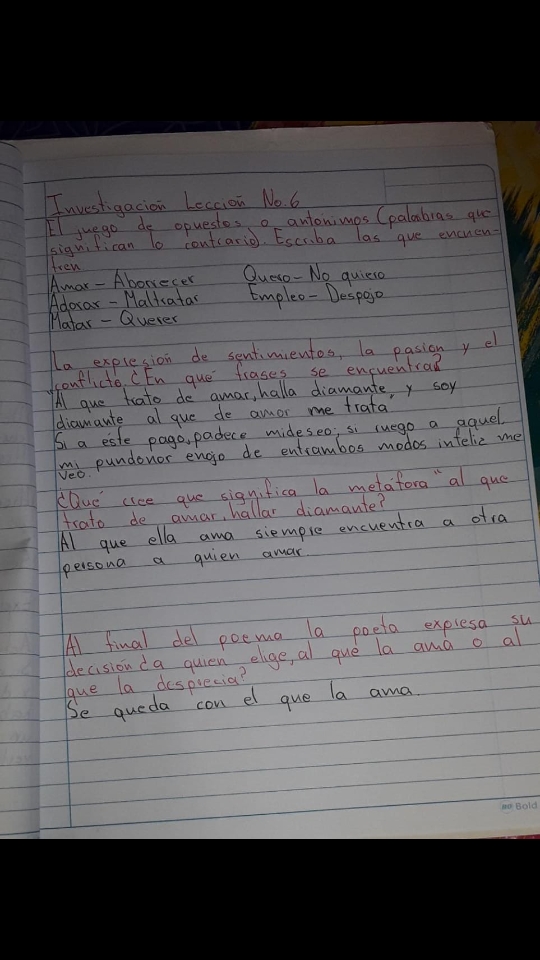 Investigación Lección No.6
El juego de opuestos o antonimos (palabras que
significan lo contrario). Escriba las que encuen-
tren
Amar - Aborrecer Quero - No quiero
Adorar - Maltratar Empleo - Despojo
Matar - Querer
La expresión de sentimientos, la pasion y el
conflicto. ¿En que frases se encuentra?
"Al que trato de amar, halla diamante, y soy
diamante al que de amor me trata
Si a este pago, padece mi deseo; si ruego a aquel
mi pundonor enojo de entrambos modos infeliz me
veo.
¿Qué cree que significa la metáfora "al que
trato de amar, hallar diamante?
Al que ella ama siempre encuentra a otra
persona a quien amar.
Al final del poema la poeta expresa su
decisión ¿a quien elige, al que la ama o al
que la desprecia?
Se queda con el que la ama.
Bold